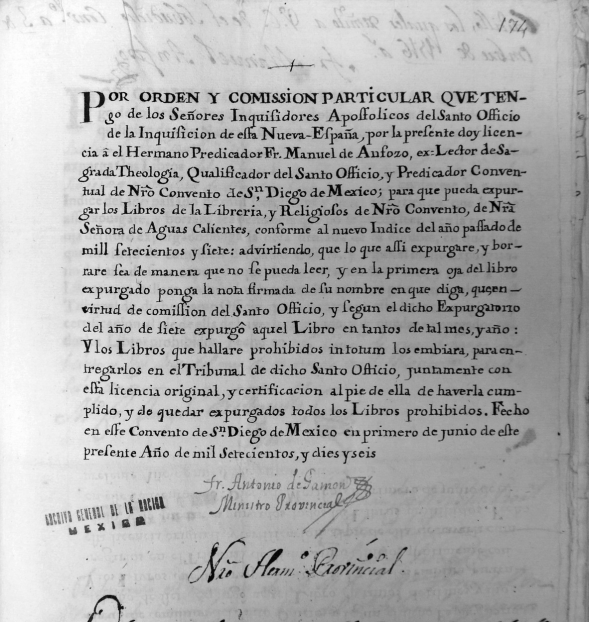 174
POR ORDEN Y COMISSION PARTICULAR QVE TEN-
go de los Señores Inquisidores Apostolicos del Santo Officio
de la Inquisicion de esta Nueva-España, por la presente doy licen-
cia â el Hermano Predicador Fr. Manuel de Ansozo, ex-Lector de Sa-
grada Theologia, Qualificador del Santo Officio, y Predicador Conven-
tual de Nrô Convento de Sn. Diego de Mexico; para que pueda expur-
gar los Libros de la Libreria, y Religiosos de Nrô Convento, de Nrâ
Señora de Aguas Calientes, conforme al nuevo Indice del año passado de
mill setecientos y siete: advirtiendo, que lo que assi expurgare, y bor-
rare sea de manera que no se pueda leer, y en la primera oja del libro
expurgado ponga la nota firmada de su nombre en que diga, que en
virtud de comission del Santo Officio, y segun el dicho Expurgatorio
del año de siete expurgô aquel Libro en tantos de tal mes, y año:
Y los Libros que hallare prohibidos in totum los embiara, para en-
tregarlos en el Tribunal de dicho Santo Officio, juntamente con
esta licencia original, y certificacion al pie de ella de haverla cum-
plido, y de quedar expurgados todos los Libros prohibidos. Fecho
en este Convento de Sn. Diego de Mexico en primero de junio de este
presente Año de mil setecientos, y dies y seis
Fr. Antonio de Gamon
Ministro Provincial
ARCHIVO GENERAL DE LA NACION
MEXICO
Nrô Herm.º Provincial.